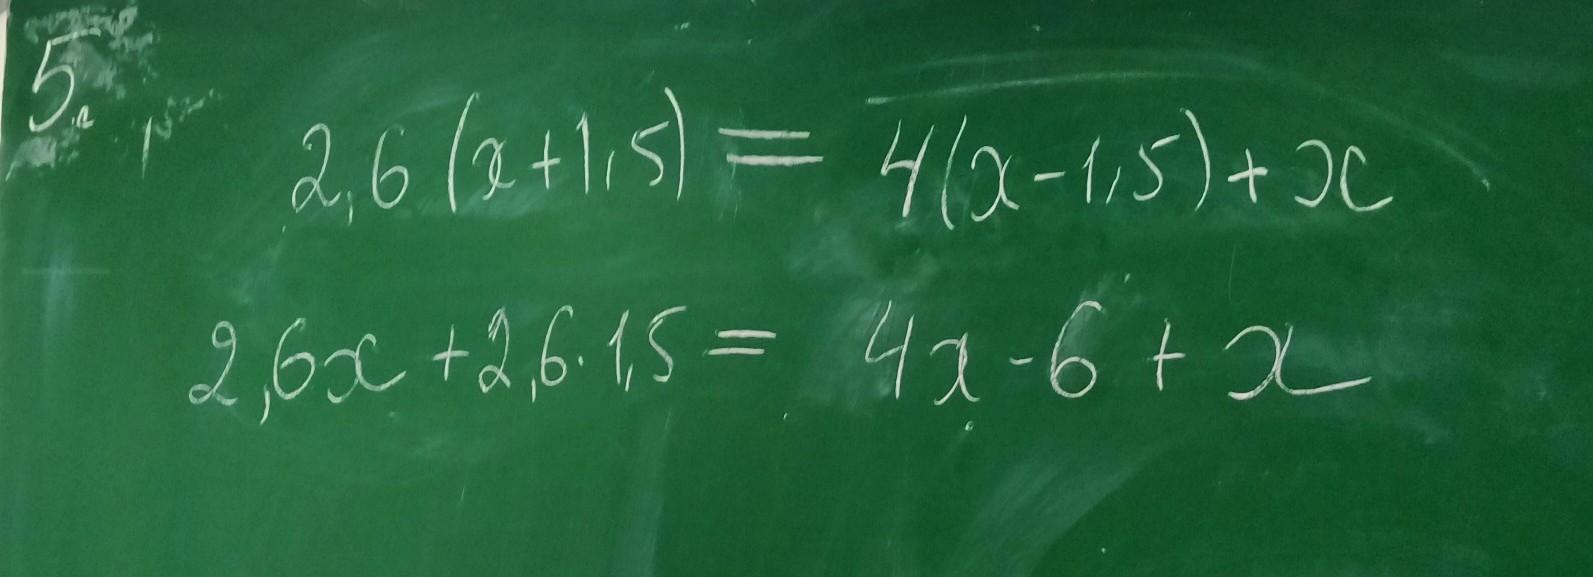 5.
2,6(x+1,5) = 4(x-1,5)+x
2,6x+2,6·1,5= 4x-6+x